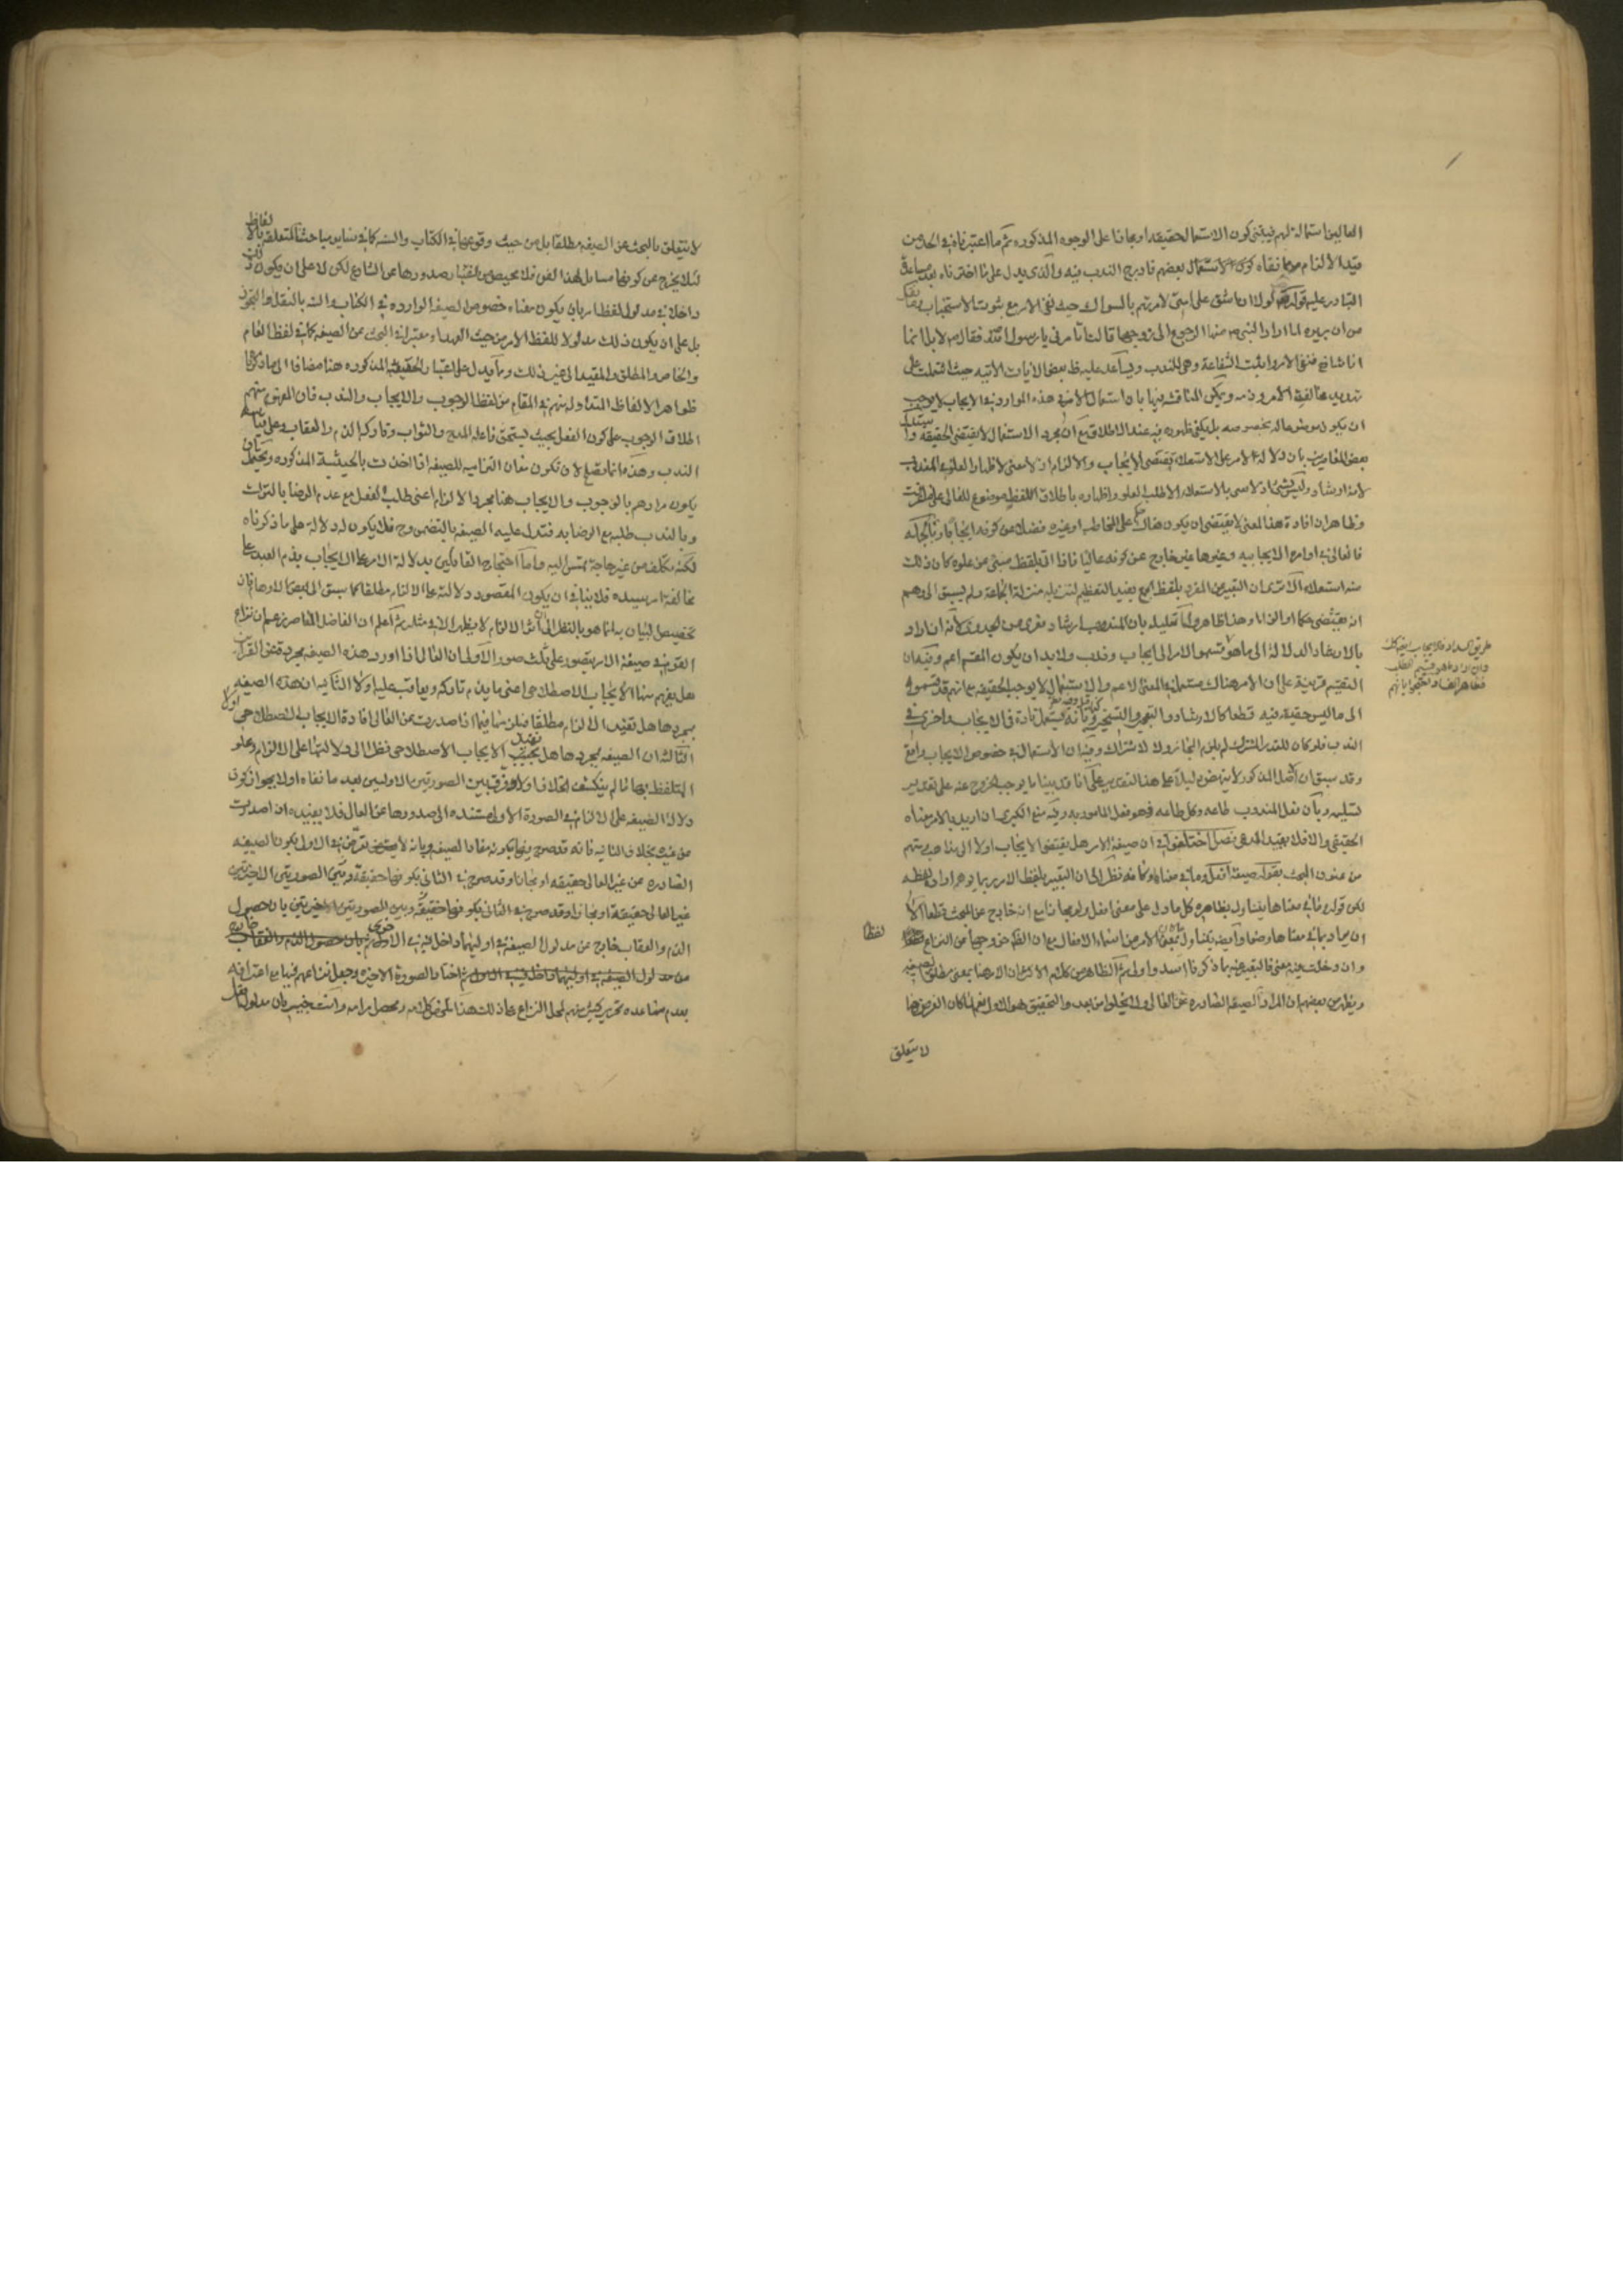 العالين استعماله لهم فينبغي كون الاستعمال حقيقه او مجازا على الوجوه المذكوره ثم ما اعتبرناه في الحد من
قيد الالزام مما نفاه بعضهم فادرج الندب فيه والذي يدل على ما اخترناه بعد
التبادر عليه قوله لولا ان اشق على امتي لامرتهم بالسواك حيث نفى الامر مع ثبوت الاستحباب
من ان بريره لما اراد النبي منها الرجوع الى زوجها قالت اتامرني يا رسول الله فقال لا بل انما
انا شافع فنفى الامر واثبت الشفاعة وهي للندب ويساعد عليه ظ بعض الايات الاتيه حيث اشتملت على
تهديد مخالف الامر وذمه ويمكن المناقشه فيها بان استعمال الامر في هذه الموارد في الايجاب لا يوجب
ان يكون موضوعا له بخصوصه بل يكفي ظهوره فيه عند الاطلاق مع ان مجرد الاستعمال لا يقتضي الحقيقه
بعض المعاصرين بان دلاله الامر على الاستعلاء يقتضي الايجاب والالزام اذ لا معنى لاظهار العلو في المندوب
لانه ارشاد وليس بشيء اذ لا نسي بالاستعلاء الا طلب العلو واظهاره باطلاق اللفظ موضوع للعالي على
وظاهر ان افادة هذا المعنى لا يقتضي ان يكون هناك على المخاطب او غيره فضلا من كونه ايجابا وبالجمله
فالعالي في اوامره الايجابيه وغيرها غير خارج عن كونه عاليا فاذا اتى بلفظ مبني عن علوه كان ذلك
منه استعلاء الا ترى ان التعبير عن المفرد بلفظ الجمع يفيد التعظيم لتنزيله منزلة الجماعة ولم يسبق الى وهم
انه يقتضي حكما او الزاما وهذا ظاهر واما تعليله بان المندوب ارشاد فعري عن الجدوى لانه ان اراد
بالارشاد الدلالة الى ما هو قسموا الامر الى ايجاب وندب ولا بد ان يكون المقسم اعم وفيه ان
التقسيم قرينة على ان الامر هناك مستعمل في المعنى الاعم والاستعمال لا يوجب الحقيقه مع انهم قد قسموه
الى ما ليس حقيقة فيه قطعا كالارشاد والتعجيز والتسخير وبانه يستعمل تارة في الايجاب واخرى في
الندب فلو كان للقدر المشترك لم يلزم المجاز ولا الاشتراك وفيه ان الاستعمال في خصوص الايجاب واقع
وقد سبق ان الاصل المذكور لا ينهض دليلا على هذا التقدير على انا قد بينا ما يوجب الخروج عنه على تقدير
تسليمه وبان فعل المندوب طاعه وكل طاعه فهو فعل المامور به وفيه منع الكبرى ان اريد بالامر معناه
الحقيقي والا فلا يفيد المدعى فصل اختلفوا في ان صيغة الامر هل يقتضي الايجاب اولا الى مذاهب شتى
من عنون البحث بقوله صيغه افعل وما في معناها وكانه نظر الى ان التعبير بلفظ الامر ربما يوهم ارادة لفظه
لكن قوله وما في معناها يتناول بظاهره كل ما دل على معنى افعل ولو مجازا مع انه خارج عن البحث قطعا الا
ان يراد بما في معناها وضعا وايضا يتناول الامر من اسماء الافعال مع ان الظ خروجها من النزاع لفظا
وان دخلت فيه معنى فالتعبير عنه بما ذكرنا اسد واولى ثم الظاهر من كلام الاكثر ان الامر هنا بمعنى مطلق الصيغه
ويظهر من بعضهم ان المراد الصيغه الصادره عن العالي ولا يخلوا من بعد والتحقيق هو الاول نعم لما كان الغرض هنا
لا يتعلق
لا يتعلق بالبحث عن الصيغه مطلقا بل من حيث وقوعها في الكتاب والسنه كما في ساير مباحثنا المتعلقه بالالفاظ
لئلا يخرج عن كونها مسايل لهذا الفن فلا محيص من اعتبار صدورها عن الشارع لكن لا على ان يكون ذلك
داخلا في مدلول لفظ الامر بان يكون معناه خصوص الصيغه الوارده في الكتاب والسنه بالنقل او التجوز
بل على ان يكون ذلك مدلولا للفظ الامر من حيث العهد او معتبرا في البحث عن الصيغه كما في لفظ العام
والخاص والمطلق والمقيد الى غير ذلك ومما يدل على اعتبار الحيثية المذكوره هنا مضافا الى ما ذكرنا
ظواهر الالفاظ المتداوله بينهم في المقام من لفظ الوجوب والايجاب والندب فان المعروف منهم
اطلاق الوجوب على كون الفعل بحيث يستحق فاعله المدح والثواب وتاركه الذم والعقاب وعلى قياسه
الندب وهذه انما تصلح لان تكون معان التزاميه للصيغه اذا اخذت بالحيثية المذكوره ويحتمل ان
يكون مرادهم بالوجوب والايجاب هنا مجرد الالزام اعني طلب الفعل مع عدم الرضا بالترك
وبالندب طلبه مع الرضا به فتدل عليه الصيغه بالتضمن وح فلا يكون له دلالة على ما ذكرناه
لكنه تكلف من غير حاجة تمس اليه واما احتجاج القائلين بدلالة الامر على الايجاب بذم العبد على
مخالفة امر سيده فلا ينافي ان يكون المقصود دلالته على الالزام مطلقا كما سبق الى بعض الاوهام فان
تخصيص البيان به انما هو بالنظر الى ان اثر الالزام لا يظهر الا في مثله ثم اعلم ان الفاضل المعاصر زعم ان نزاع
القوم في صيغة الامر يتصور على ثلث صور الاولى ان العالي اذا اورد هذه الصيغه مجردة عن القرائن
هل يفهم منها الايجاب الاصطلاحي اعني ما يذم تاركه ويعاقب عليه اولا الثانيه ان هذه الصيغه
بمجردها هل تفيد الالزام مطلقا فيلزمها فيما اذا صدرت من العالي افادة الايجاب الاصطلاحي اولا
الثالثه ان الصيغه بمجردها هل تفيد الايجاب الاصطلاحي نظرا الى دلالتها على الالزام وعلو
المتلفظ بها ما لم ينكشف الخلاف اولا وفرق بين الصورتين الاوليين بعد ما نفاه اولا بجواز كون
دلالة الصيغه على الالزام في الصورة الاولى مستنده الى صدورها عن العالي فلا يفيده ان صدرت
من غيره بخلاف الثانيه فانه قد صرح فيها بكونه مفاد الصيغه وبانه لا يتعرض في الاولى بكون الصيغه
الصادره عن غير العالي حقيقه او مجازا وقد صرح في الثاني بكونها حقيقة وبين الصورتين الاخيرتين
غير العالي حقيقة او مجازا وقد صرح في الثاني بكونها حقيقة وبين الصورتين الاخيرتين بان حصول
الذم والعقاب خارج عن مدلول الصيغه في اوليهما داخل فيه في الاخرى
ثم اختار الصورة الاخيره وجعل نزاعهم فيها مع اعترافه
بعدم مساعدة تحرير كثير منهم لمحل النزاع على ذلك هذا ملخص كلامه ومحصل مرامه وانت خبير بان مدلول